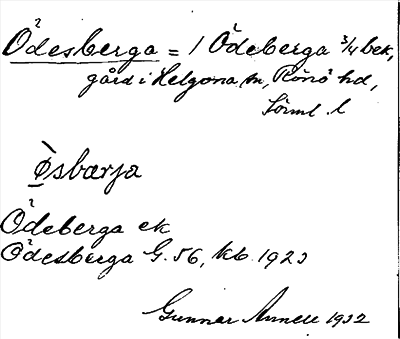 Ödesberga = 1 Ödeberga 3/4 bek,
gård i Helgona sn, Rönö hd,
Sörml. l
Ø̀sbærja
Ödeberga ek
Ödesberga G. 56, kb. 1923
Gunnar Annell 1932